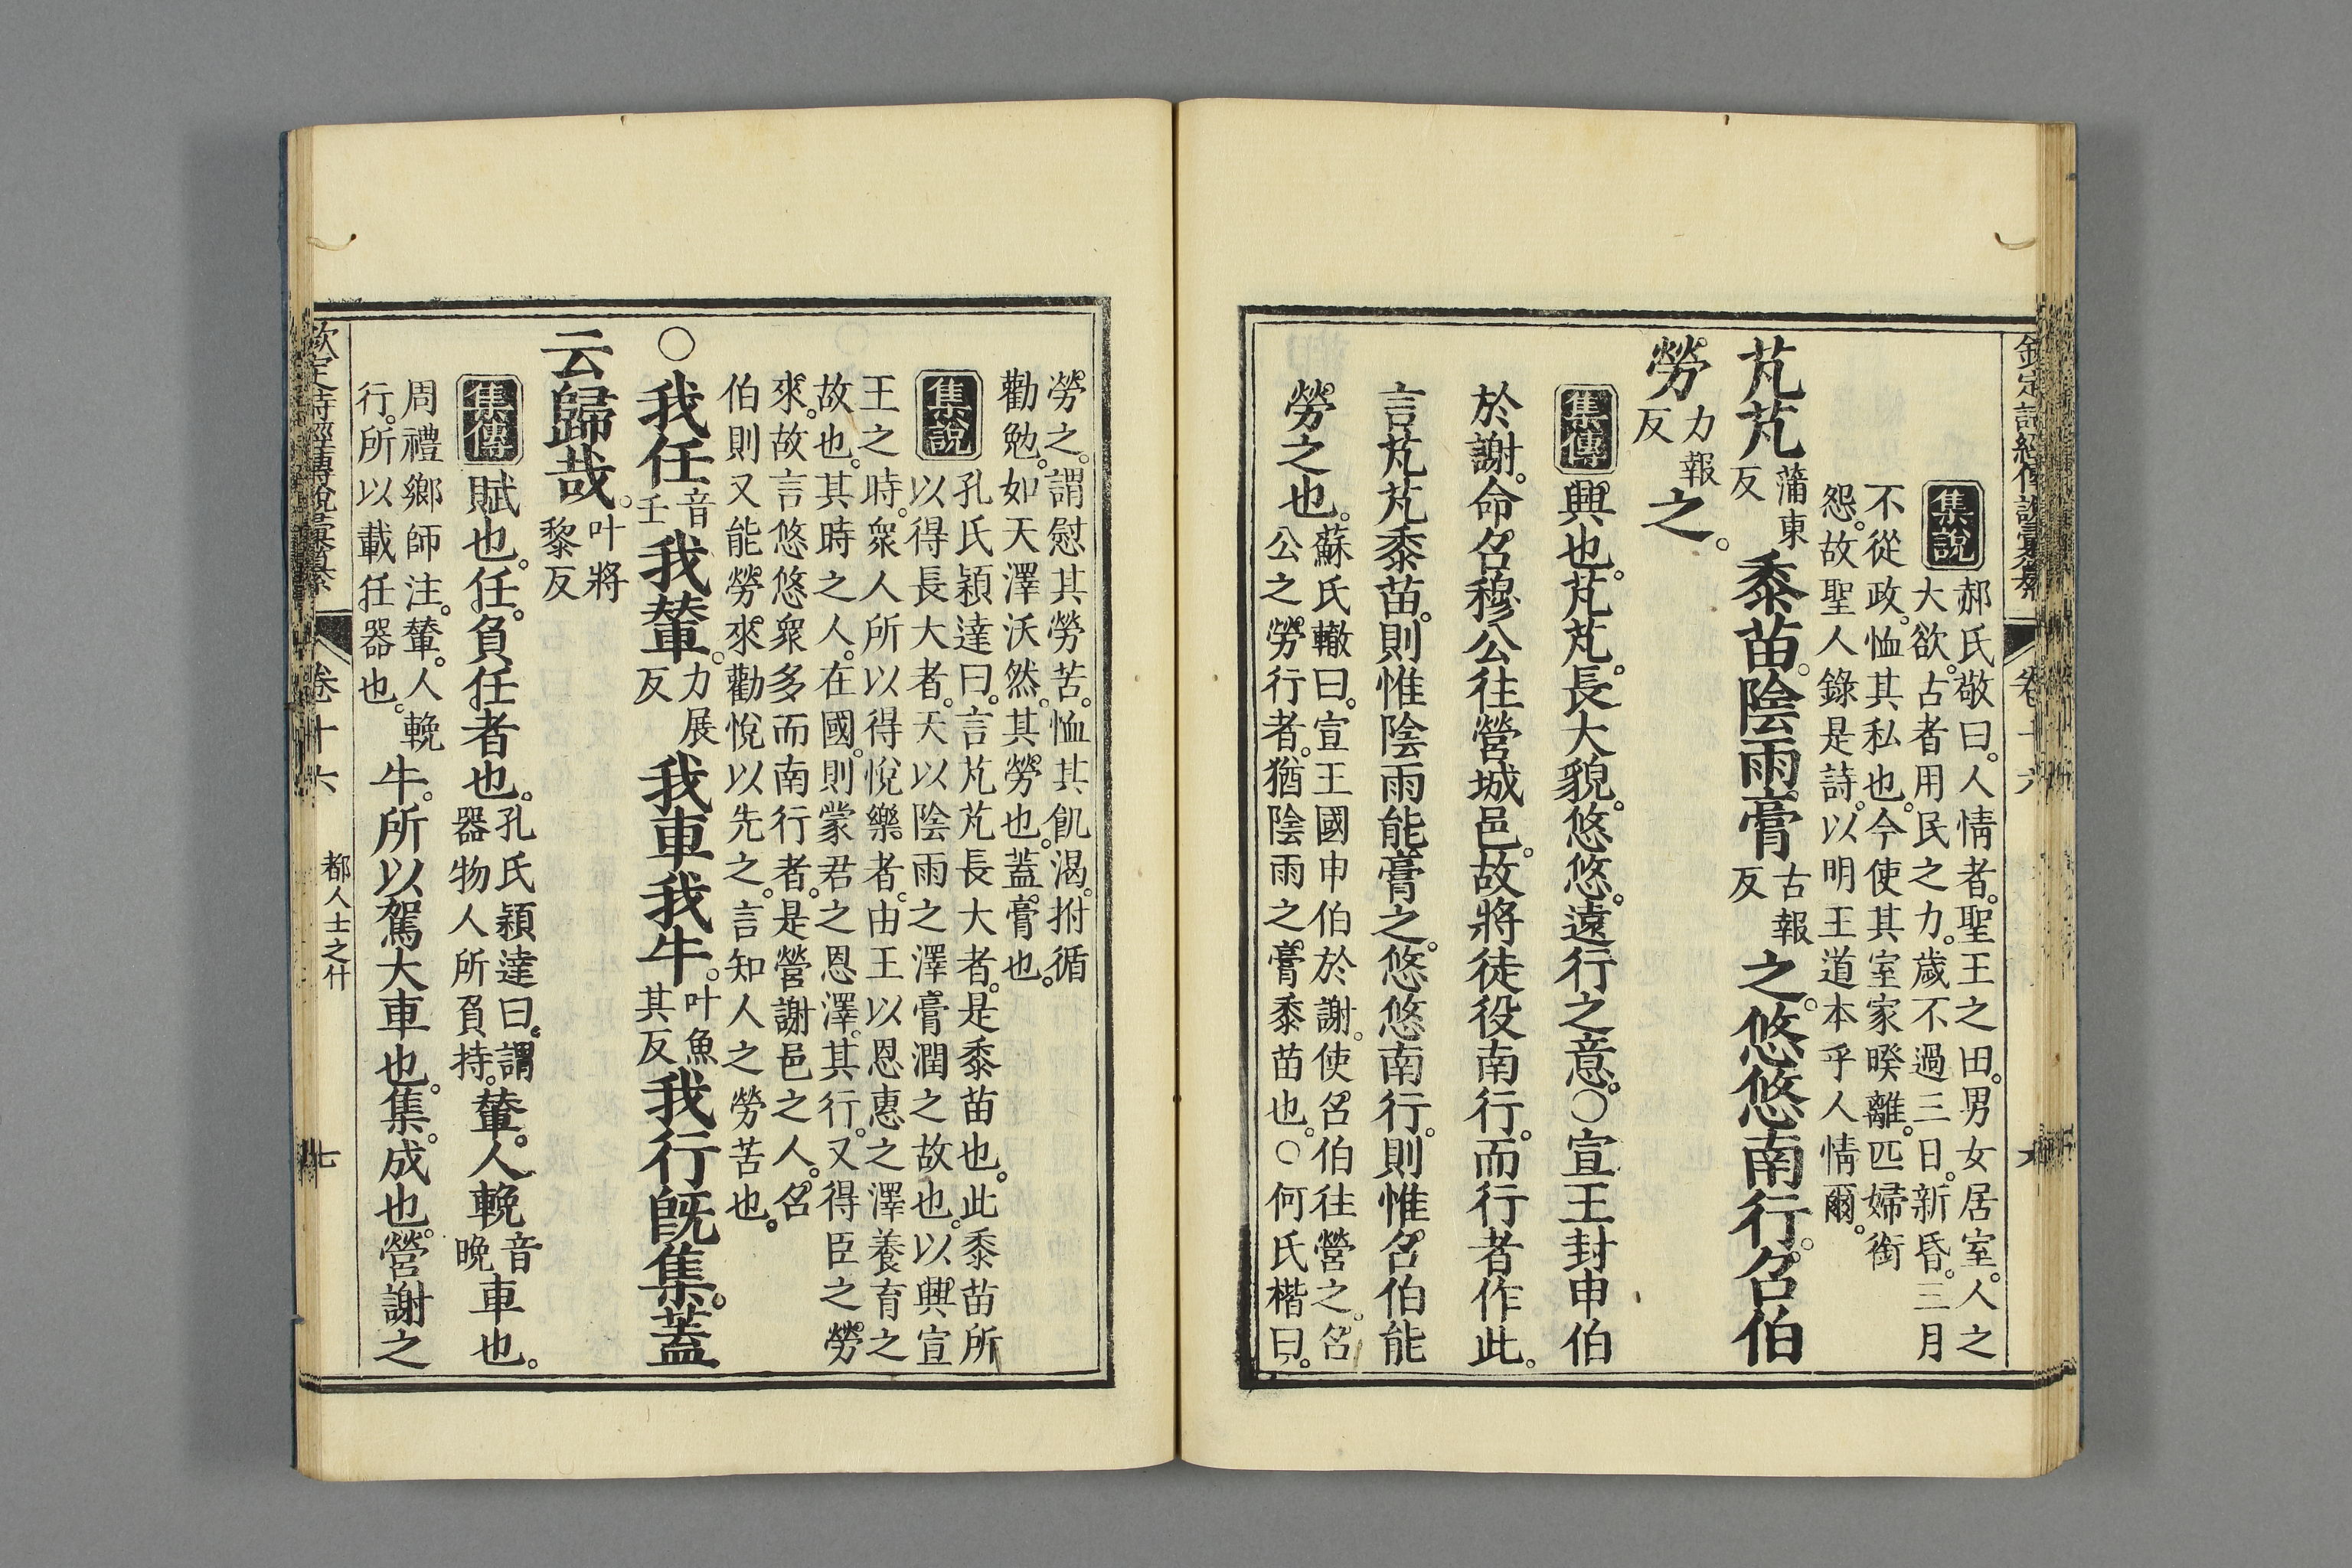 欽定詩經傳說彙纂 卷十六
集說 郝氏敬曰。人情者。聖王之田。男女居室。人之
大欲。古者用民之力。歲不過三日。新昏。三月
不從政。恤其私也。今使其室家暌離。匹婦銜
怨。故聖人錄是詩。以明王道本乎人情爾。
芃芃蒲東反黍苗。陰雨膏古報反之。悠悠南行。召伯
勞力報反之。
集傳 興也。芃芃。長大貌。悠悠。遠行之意。○宣王封申伯
於謝。命召穆公往營城邑。故將徒役南行。而行者作此。
言芃芃黍苗。則惟陰雨能膏之。悠悠南行。則惟召伯能
勞之也。蘇氏轍曰。宣王國申伯於謝。使召伯往營之。召
公之勞行者。猶陰雨之膏黍苗也。○何氏楷曰。
勞之。謂慰其勞苦。恤其飢渴。拊循
勸勉。如天澤沃然。其勞也。蓋膏也。
集說 孔氏穎達曰。言芃芃長大者。是黍苗也。此黍苗所
以得長大者。天以陰雨之澤膏潤之故也。以興宣
王之時。衆人所以得悅樂者。由王以恩惠之澤養育之
故也。其時之人。在國則蒙君之恩澤。其行又得臣之勞
來。故言悠悠衆多而南行者。是營謝邑之人。召
伯則又能勞來勸悅以先之。言知人之勞苦也。
○我任音壬我輦。力展反我車我牛。叶魚其反我行既集。蓋
云歸哉。叶將黎反
集傳 賦也。任。負任者也。孔氏穎達曰。謂器物人所負持。輦。人輓音晚車也。
周禮鄉師注。輦。人輓行。所以載任器也。牛。所以駕大車也。集。成也。營謝之
欽定詩經傳說彙纂 卷十六 都人士之什 七